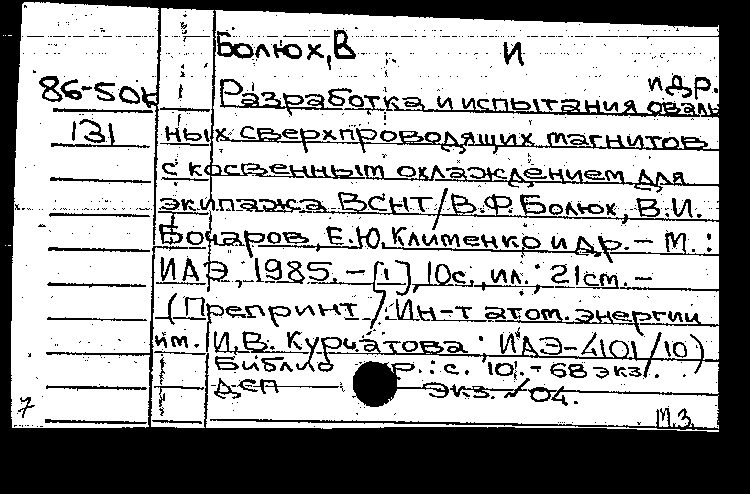 Болюх, В И
и др.
86-50к Разработка и испытания оваль
131 ных сверхпроводящих магнитов
с косвенным охлаждением для
экипажа ВСНТ/В.Ф. Болюх, В.И.
Бочаров, Е.Ю. Клименко и др. - М.:
ИАЭ, 1985. - [1], 10с., ил.; 21см. -
(Препринт / Ин-т атом. энергии
им. И.В. Курчатова; ИАЭ-4101/10)
Библиогр.: с. 10. - 68 экз.
ДСП Экз. № 04.
7 М.З.